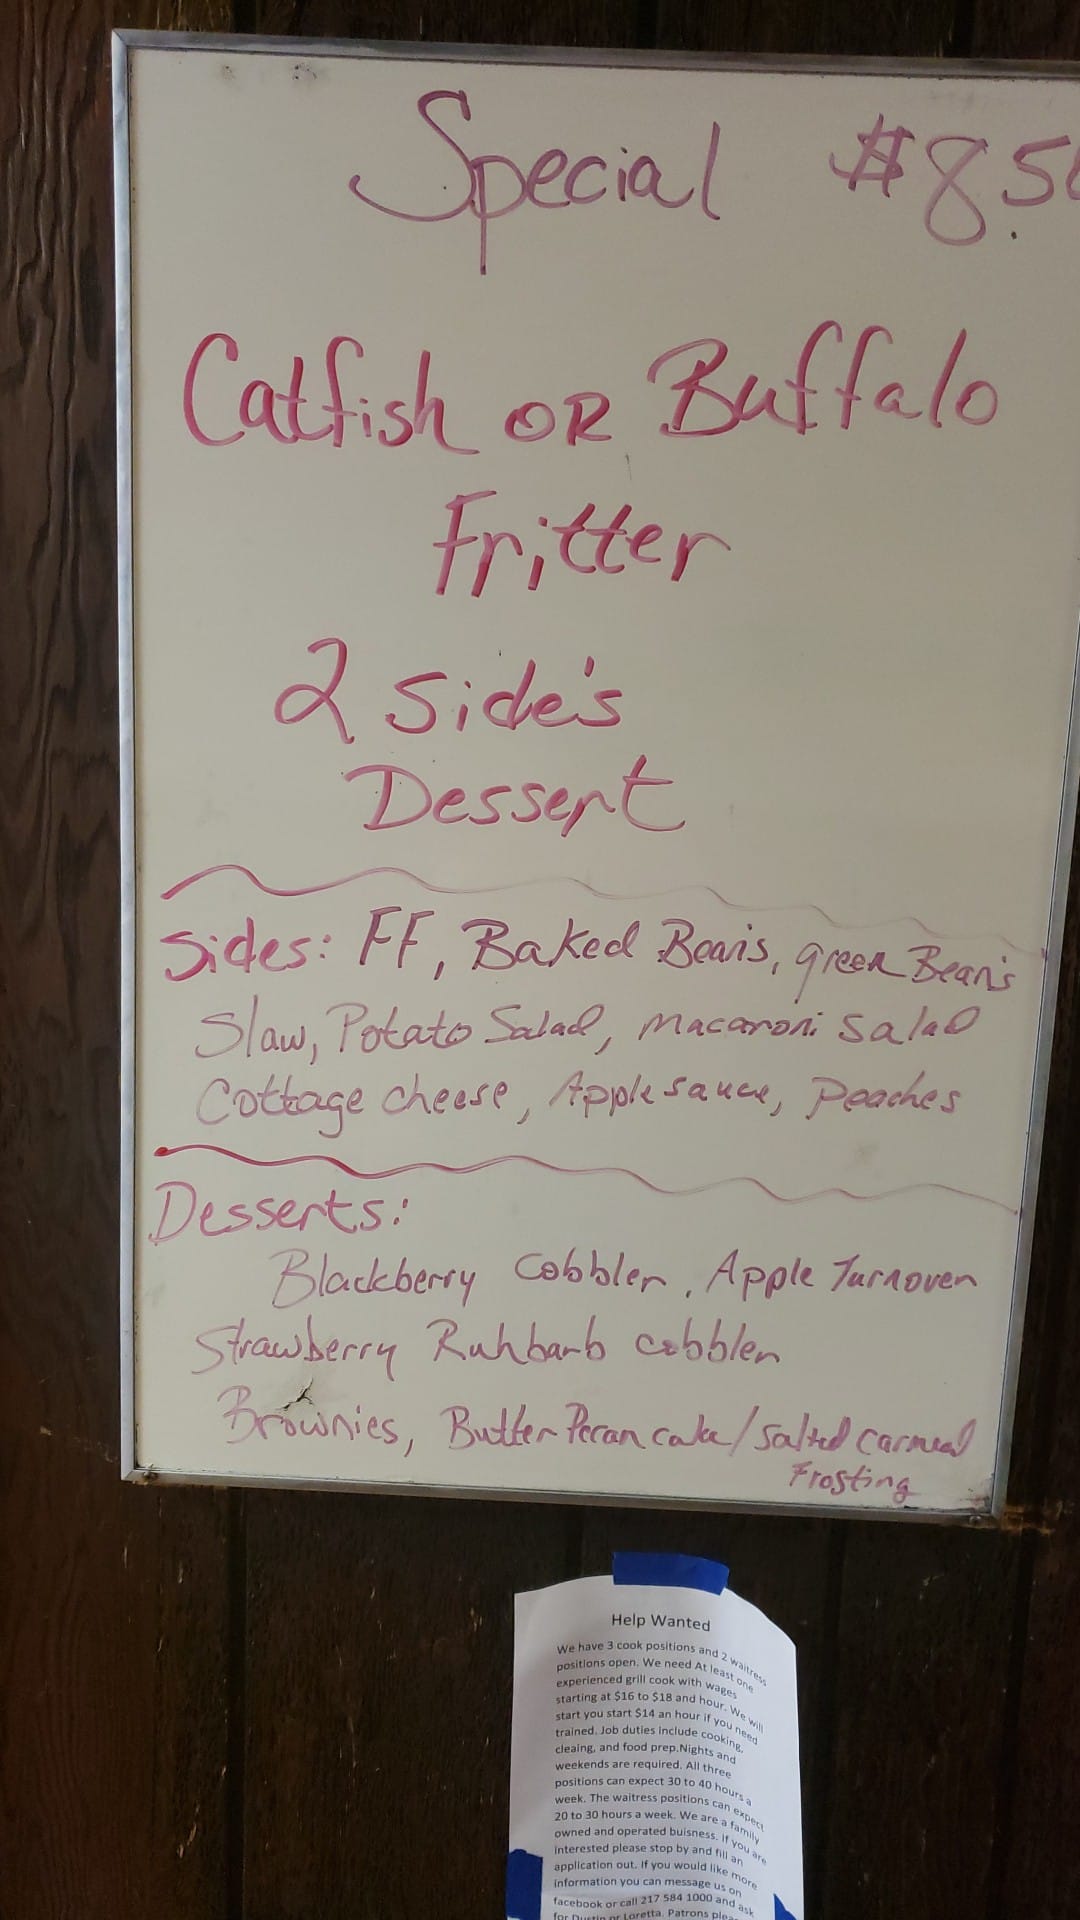 Special $8.50
Catfish OR Buffalo
Fritter
2 Side's
Dessert
Sides: FF, Baked Bean's, green Bean's
Slaw, Potato Salad, Macaroni Salad
Cottage cheese, Apple sauce, Peaches
Desserts:
Blackberry Cobbler, Apple Turnover
Strawberry Ruhbarb cobbler
Brownies, Butter Pecan cake/Salted Carmeal
Frosting
Help Wanted
We have 3 cook positions and 2 waitress
positions open. We need At least one
experienced grill cook with wages
starting at $16 to $18 and hour. We will
start you start $14 an hour if you need
trained. Job duties include cooking,
cleaing, and food prep.Nights and
weekends are required. All three
positions can expect 30 to 40 hours a
week. The waitress positions can expect
20 to 30 hours a week. We are a family
owned and operated buisness. If you are
interested please stop by and fill an
application out. If you would like more
information you can message us on
facebook or call 217 584 1000 and ask
for Dustin or Loretta. Patrons